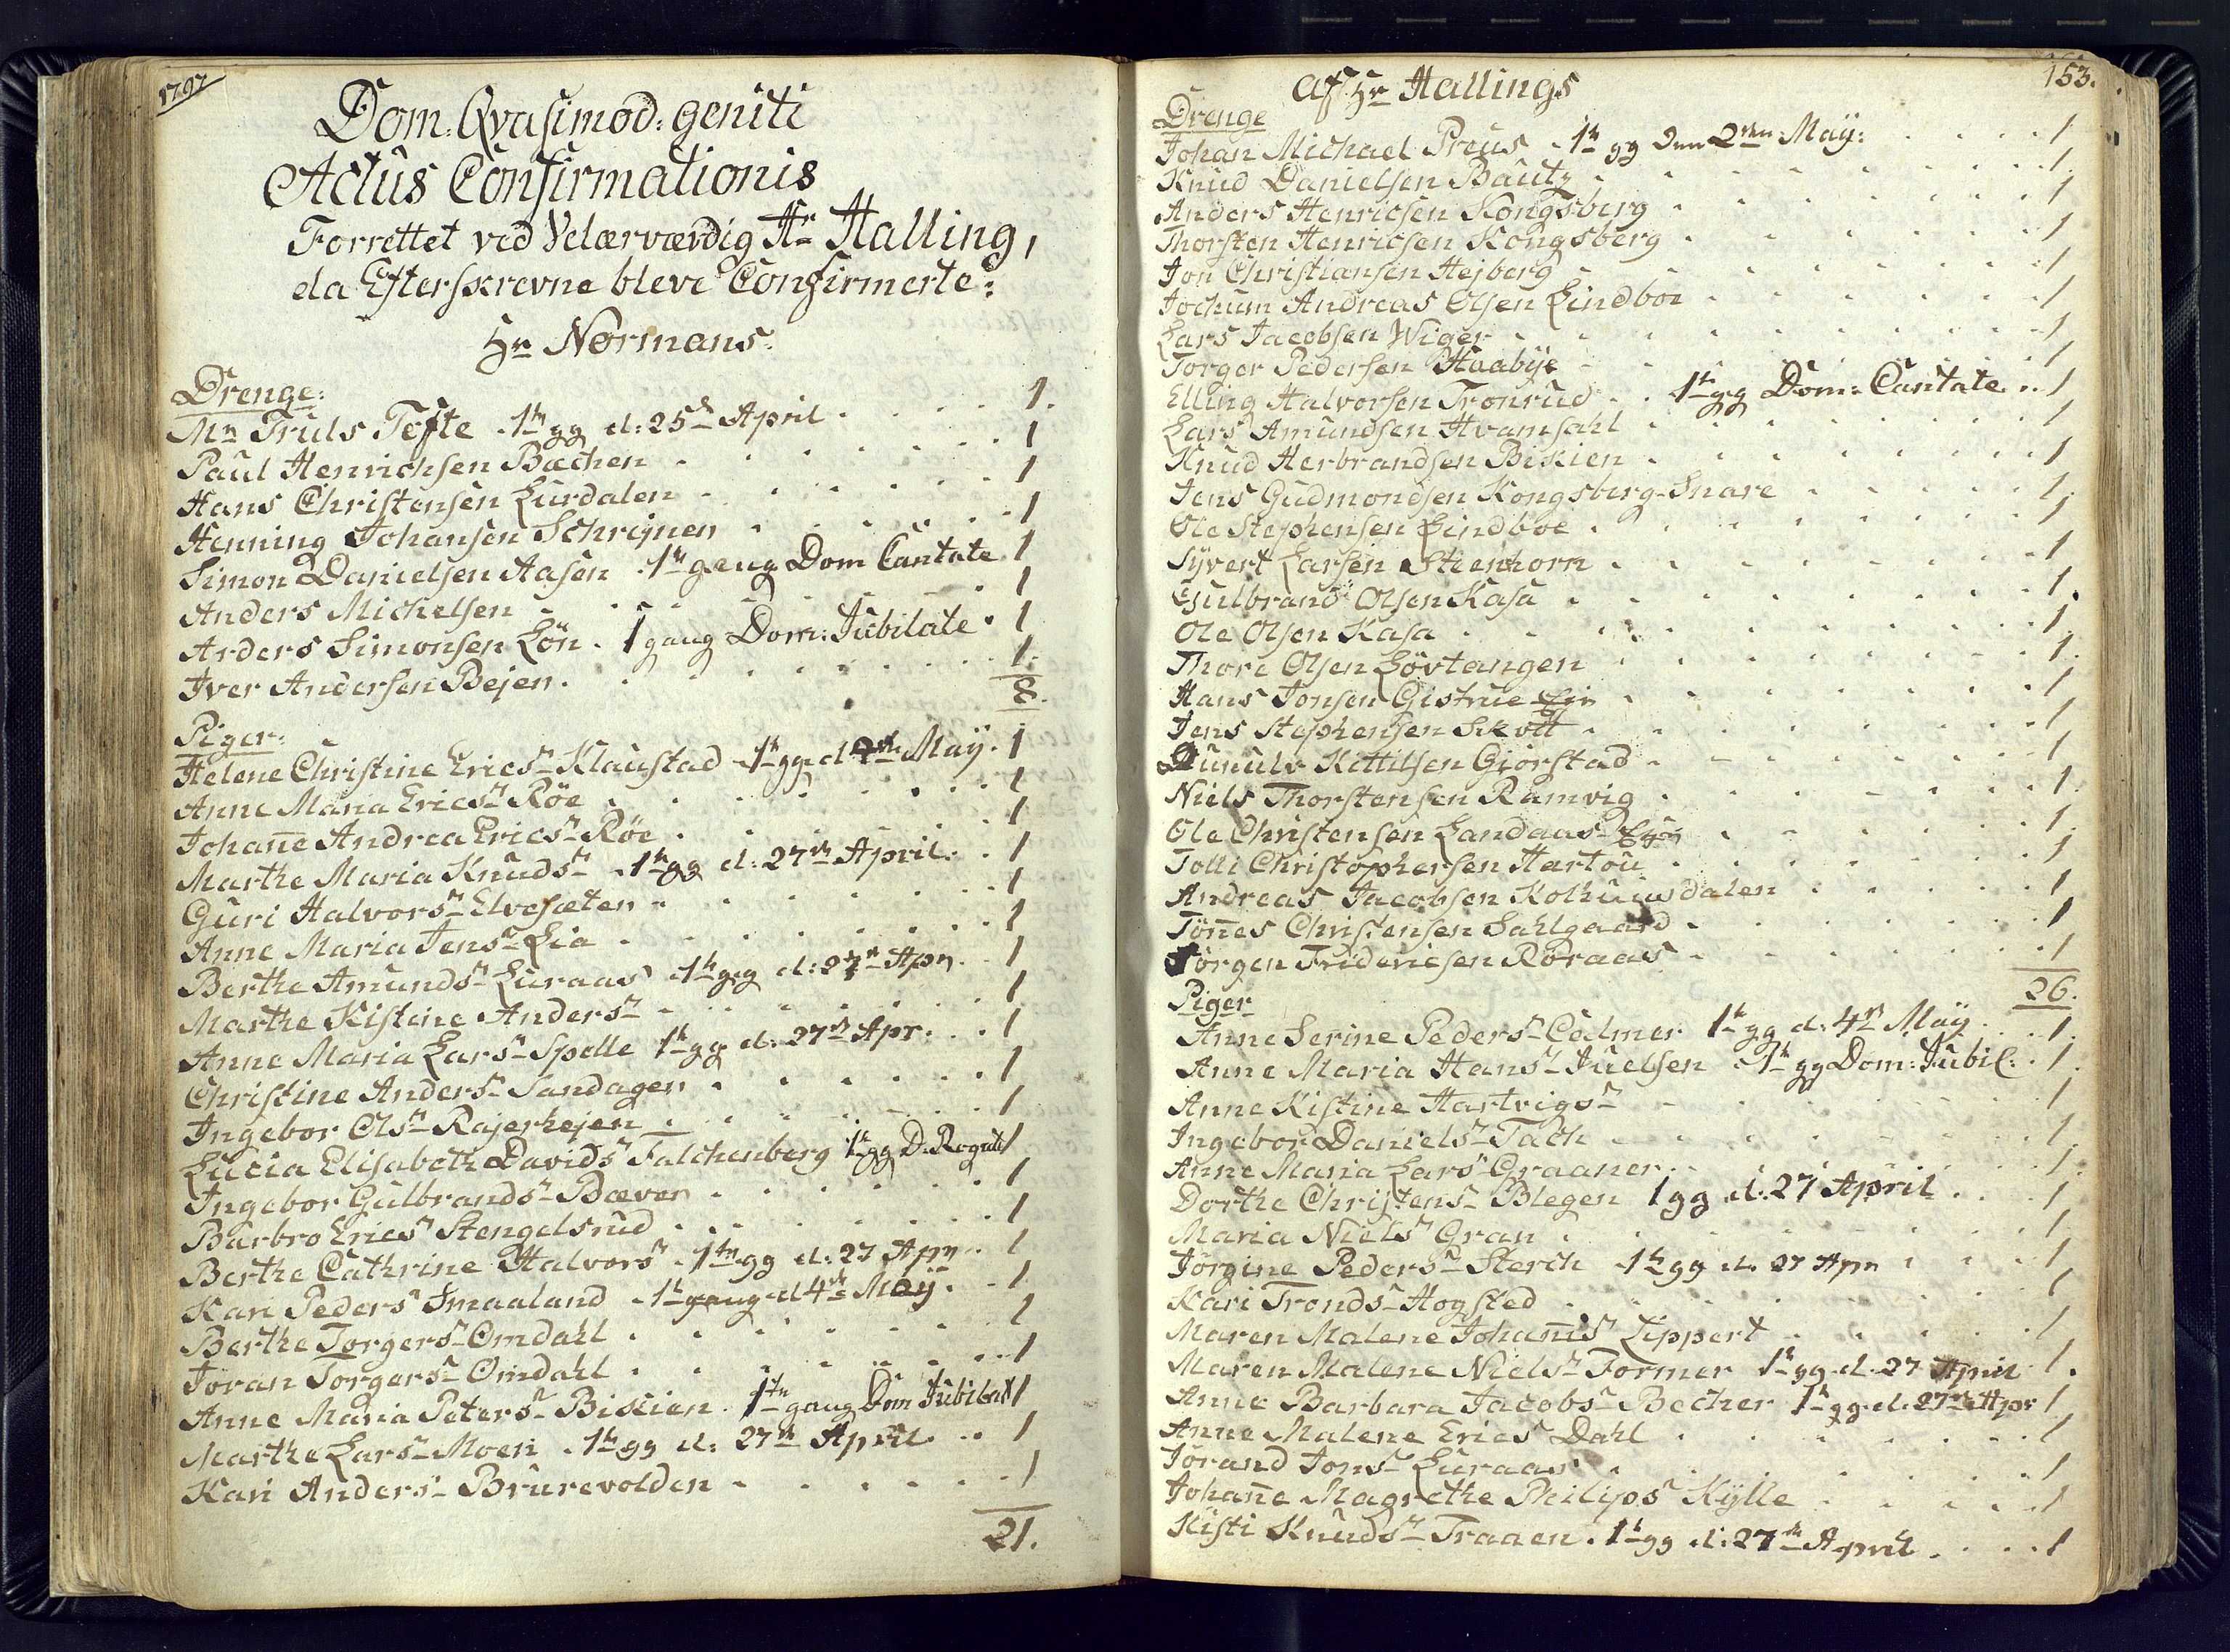 1797
Dom: Qvasimod: geniti
Actus Confirmationis
Forrettet ved Velærværdig Hr Halling,
da Efterskrevne bleve Confirmerte:
Hr Normans.
Drenge:
Mr Truls Tofte 1te gg d: 25de April . . . . 1.
Paul Henrichsen Bæchen . . . . 1
Hans Christensen Lurdalen . . . . 1
Henning Johansen Schrijnen . . . . 1
Simon Danielsen Aasen 1te gang Dom Cantate 1
Anders Michelsen . . . . 1
Anders Simonsen Lön . 1 gang Dom: Jubilate . 1
Iver Andersen Bejen . . . . 1.
8.
Piger:
Helene Christine Erics Klaustad 1te gg d 2den May . 1
Anne Maria Erics Röe . . . . 1
Johanne Andrea Erics Röe . . . . 1
Marthe Maria Knuds 1te gg d: 27de April . . 1
Guri Halvors Elvesæten . . . . 1
Anne Maria Jens Lia . . . . 1
Berthe Amunds Luraas 1te gg d: 27de Apr . . 1
Marthe Kistine Anders . . . . 1
Anne Maria Lars Spelle 1te gg d: 27de Apr: . . 1
Christine Anders Sandagen . . . . 1
Ingebor Ols Rajerhejen . . . . 1
Lucia Elisabeth Davids Falchenberg 1te gg D. Rogate 1
Ingebor Gulbrands Bæver . . . . 1
Barbro Erics Stengelsrud . . . . 1
Berthe Cathrine Halvors 1te gg d: 27 Apr . . 1
Kari Peders Smaaland 1te gang d 4de May . . 1
Berthe Torgers Omdahl . . . . 1
Joran Torgers Omdahl . . . . 1
Anne Maria Peters Biskien . 1te gang Dom Jubilat 1
Marthe Lars Moen . 1te gg d: 27de April . . 1
Kari Anders Brurevolden . . . . 1
21.
153.
Af Hr Hallings
Drenge
Johan Michael Preus 1te gg den 2den May: . . . . 1
Knud Danielsen Bautz . . . . 1
Anders Henricsen Kongsberg . . . . 1
Thorsten Henricsen Kongsberg . . . . 1
Jon Christiansen Hejberg . . . . 1
Jochum Andreas Olsen Lindboe . . . . 1
Lars Jacobsen Wiger . . . . 1
Torger Pedersen Haabye . . . . 1
Elling Halvorsen Tronrud . . 1te gg Dom: Cantate . . 1
Lars Amundsen Hvamsahl . . . . 1
Knud Herbrandsen Biskien . . . . 1
Jens Gudmondsen Kongsberg-Snare . . . . 1
Ole Stephensen Lindboe . . . . 1
Syvert Larsen Steenhorn . . . . 1
Gulbrand Olsen Kasa . . . . 1.
Ole Olsen Kasa . . . . 1
Thore Olsen Lövtangen . . . . 1.
Hans Jonsen Gistrue . . . . 1
Jens Stephensen Skott . . . . 1
Kittilsen Gjorstad . . . . 1
Niels Thorstensen Ramvig . . . . 1
Ole Christensen Landaas . . . . 1
Tolli Christophersen Hartou . . . . 1
Andreas Jacobsen Kolhuusdalen . . . . 1
Tönnes Christensen Sahlgaard . . . . 1
Jörgen Fridericsen Röraas . . . . 1
26.
Piger
Anne Serine Peders Colmer 1te gg d: 4de May . . 1.
Anne Maria Hans Juelsen . 1te gg Dom: Jubil: . 1.
Anne Kistine Hartvigs . . . . 1
Ingebor Daniels Tach . . . . 1
Anne Maria Lars Graaner . . . . 1.
Dorthe Christens Blegen 1 gg d: 27 April . . . 1
Maria Niels Gran . . . . 1
Jörgine Peders Sterch 1te gg d. 27 Apr . . . 1
Kari Tronds Hogsted . . . . 1
Maren Malene Johannis Lippert . . . . 1
Maren Malene Niels Former 1te gg d. 27 April . 1.
Anne Barbara Jacobs Becher 1te gg d. 27de Apr 1
Anne Malene Erics Dahl . . . . 1
Jörand Jons Luraas . . . . 1
Johanne Magrethe Philips Kylle . . . . 1
Kisti Knuds Traaen . 1te gg d: 27de April . . . . 1